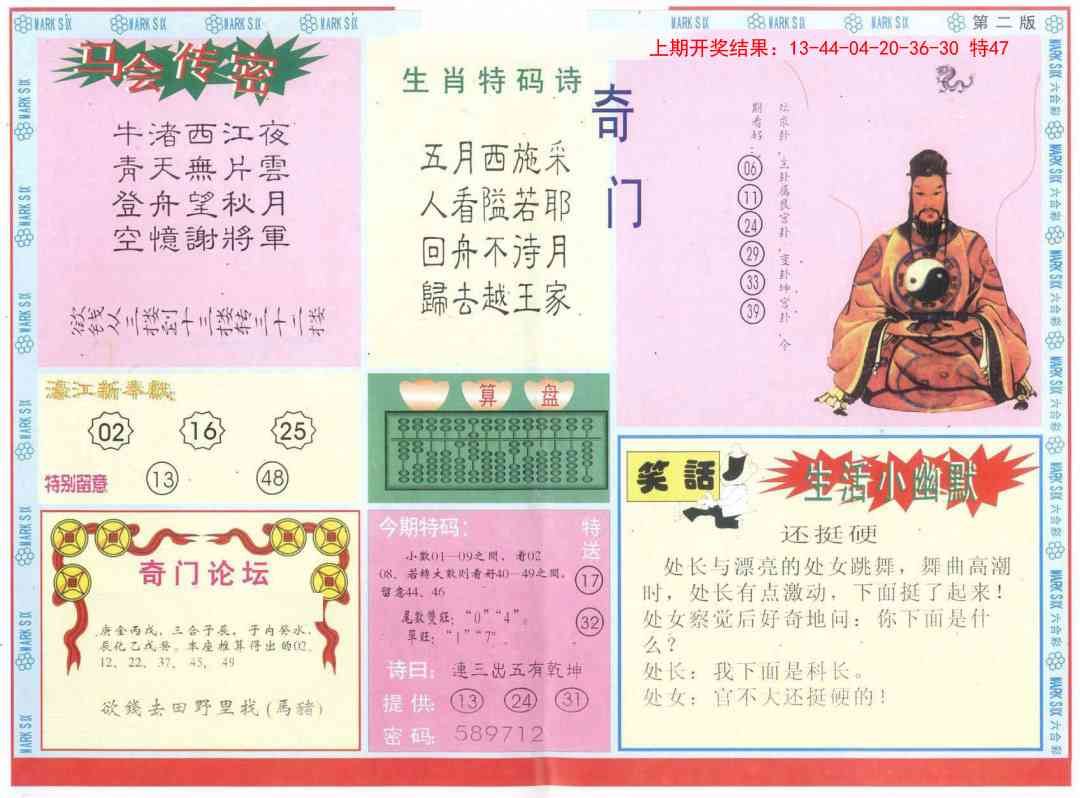 MARK SIX
MARK SIX
MARK SIX
MARK SIX
MARK SIX
MARK SIX
MARK SIX
第二版
上期开奖结果：13-44-04-20-36-30 特47
马会传密
牛渚西江夜
青天無片雲
登舟望秋月
空憶謝將軍
欲钱从三楼到十三楼转三十二楼
生肖特码诗
五月西施采
人看隘若耶
回舟不待月
歸去越王家
奇门
坛求卦，主卦属艮宫卦，变卦坤宫卦，个
期看好：
06
11
24
29
33
39
濠江新奉献
02 16 25
特别留意 13 48
算盘
奇门论坛
唐金丙戊，三合子辰，子内癸水，
辰化乙戊癸。本座推算得出的02、
12、22、37、45、49
欲錢去田野里找(馬豬)
今期特码：
小数01—09之间，看02
08、若转大数则看好40—49之间，
留意44、46
尾数雙旺：“0”“4”。
单旺：“1”“7”
特送
17
32
诗曰：連三出五有乾坤
提供：13 24 31
密码：589712
笑話
生活小幽默
还挺硬
处长与漂亮的处女跳舞，舞曲高潮
时，处长有点激动，下面挺了起来！
处女察觉后好奇地问：你下面是什
么？
处长：我下面是科长。
处女：官不大还挺硬的！
MARK SIX 六合彩
MARK SIX 六合彩
MARK SIX 六合彩
MARK SIX 六合彩
MARK SIX 六合彩
MARK SIX 六合彩
MARK SIX 六合彩